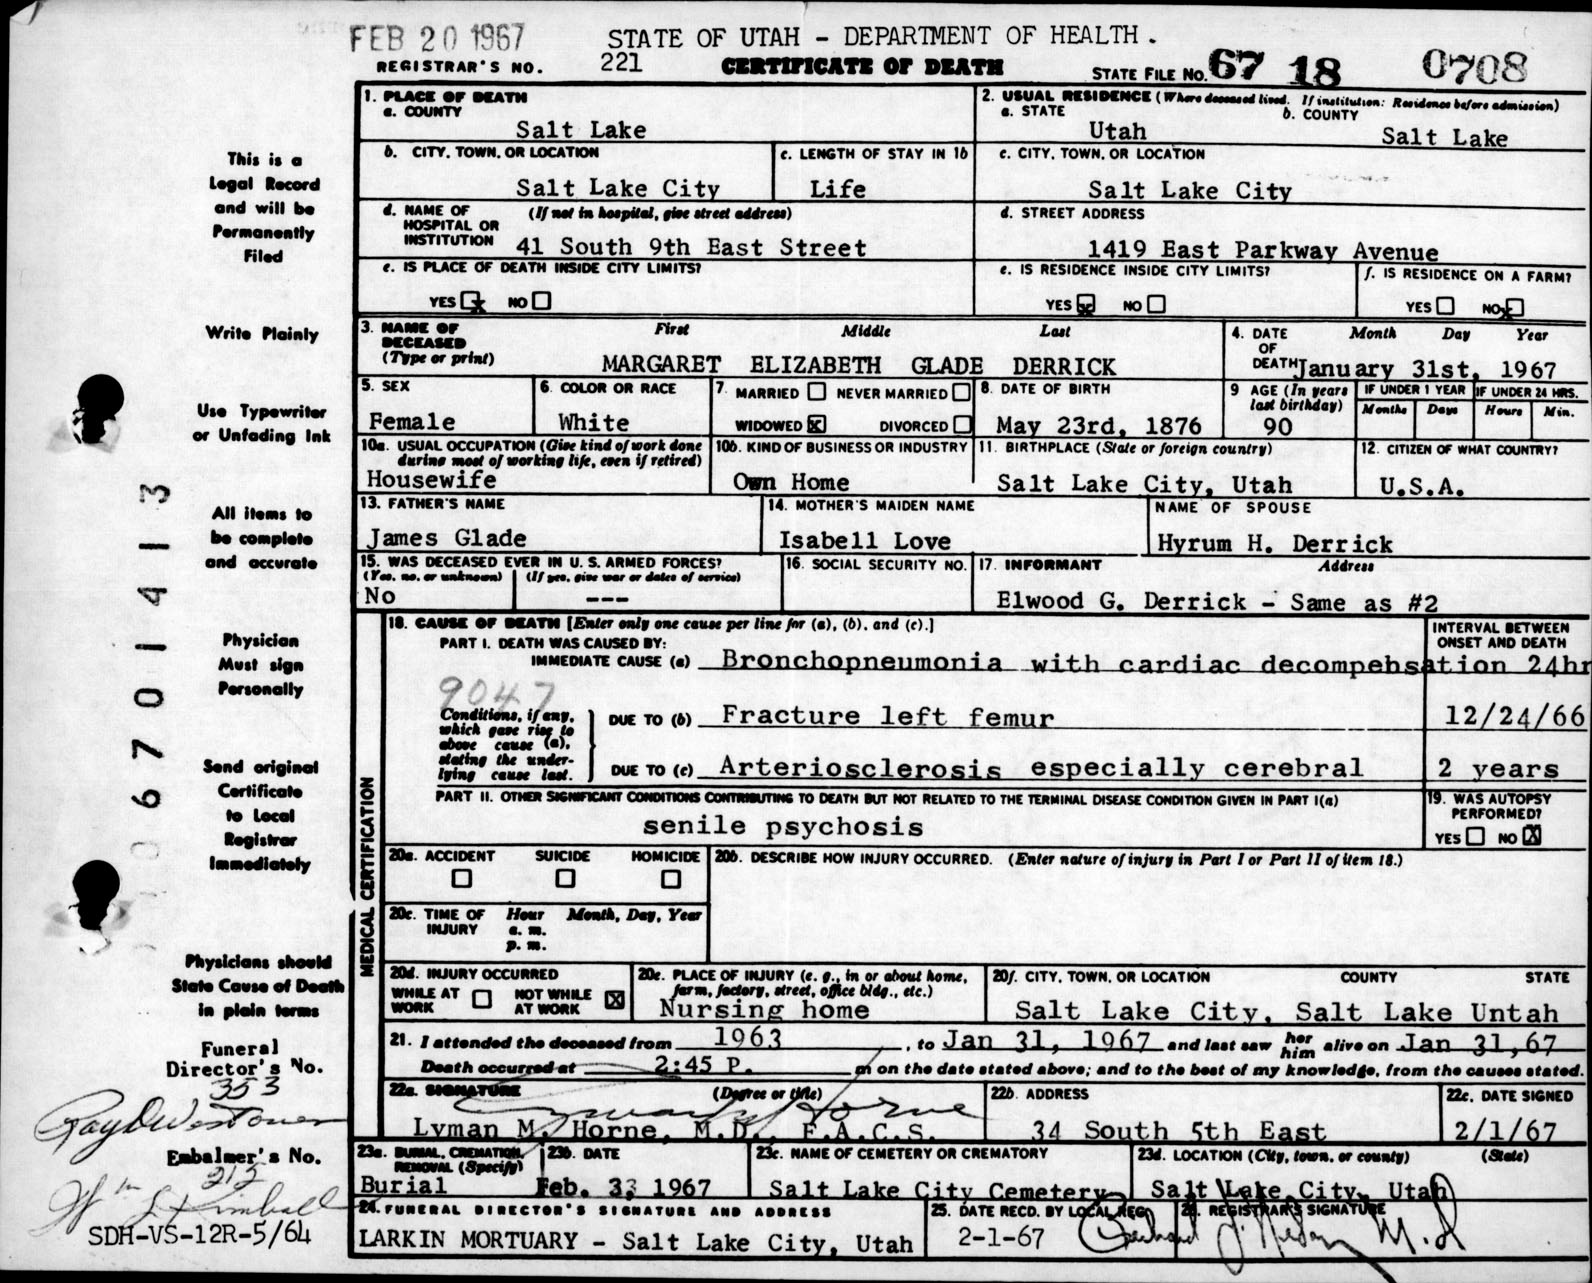 FEB 20 1967
STATE OF UTAH – DEPARTMENT OF HEALTH.
REGISTRAR'S NO. 221 CERTIFICATE OF DEATH STATE FILE NO. 67 18 0708
This is a
Legal Record
and will be
Permanently
Filed
Write Plainly
Use Typewriter
or Unfading Ink
All items to
be complete
and accurate
Physician
Must sign
Personally
Send original
Certificate
to Local
Registrar
Immediately
Physicians should
State Cause of Death
in plain terms
Funeral
Director's No.
353
Embalmer's No.
212
Wm L Kimball
SDH-VS-12R-5/64
067014 13
1. PLACE OF DEATH
a. COUNTY
Salt Lake
2. USUAL RESIDENCE (Where deceased lived. If institution: Residence before admission)
a. STATE b. COUNTY
Utah Salt Lake
b. CITY, TOWN, OR LOCATION c. LENGTH OF STAY IN 1b c. CITY, TOWN, OR LOCATION
Salt Lake City Life Salt Lake City
d. NAME OF HOSPITAL OR INSTITUTION (If not in hospital, give street address)
41 South 9th East Street
d. STREET ADDRESS
1419 East Parkway Avenue
e. IS PLACE OF DEATH INSIDE CITY LIMITS?
YES x NO
e. IS RESIDENCE INSIDE CITY LIMITS?
YES x NO
f. IS RESIDENCE ON A FARM?
YES NO x
3. NAME OF DECEASED (Type or print) First Middle Last
MARGARET ELIZABETH GLADE DERRICK
4. DATE OF DEATH Month Day Year
January 31st, 1967
5. SEX
Female
6. COLOR OR RACE
White
7. MARRIED NEVER MARRIED
WIDOWED X DIVORCED
8. DATE OF BIRTH
May 23rd, 1876
9 AGE (In years last birthday)
90
IF UNDER 1 YEAR IF UNDER 24 HRS.
Months Days Hours Min.
10a. USUAL OCCUPATION (Give kind of work done during most of working life, even if retired)
Housewife
10b. KIND OF BUSINESS OR INDUSTRY
Own Home
11. BIRTHPLACE (State or foreign country)
Salt Lake City, Utah
12. CITIZEN OF WHAT COUNTRY?
U.S.A.
13. FATHER'S NAME
James Glade
14. MOTHER'S MAIDEN NAME
Isabell Love
NAME OF SPOUSE
Hyrum H. Derrick
15. WAS DECEASED EVER IN U. S. ARMED FORCES?
(Yes, no, or unknown) (If yes, give war or dates of service)
No ---
16. SOCIAL SECURITY NO.
17. INFORMANT Address
Elwood G. Derrick - Same as #2
MEDICAL CERTIFICATION
18. CAUSE OF DEATH [Enter only one cause per line for (a), (b), and (c).]
INTERVAL BETWEEN ONSET AND DEATH
PART I. DEATH WAS CAUSED BY:
IMMEDIATE CAUSE (a) Bronchopneumonia with cardiac decompehsation 24hr
9047
Conditions, if any, which gave rise to above cause (a), stating the underlying cause last.
DUE TO (b) Fracture left femur 12/24/66
DUE TO (c) Arteriosclerosis especially cerebral 2 years
PART II. OTHER SIGNIFICANT CONDITIONS CONTRIBUTING TO DEATH BUT NOT RELATED TO THE TERMINAL DISEASE CONDITION GIVEN IN PART I(a)
senile psychosis
19. WAS AUTOPSY PERFORMED?
YES NO X
20a. ACCIDENT SUICIDE HOMICIDE
20b. DESCRIBE HOW INJURY OCCURRED. (Enter nature of injury in Part I or Part II of item 18.)
20c. TIME OF INJURY Hour Month, Day, Year
a. m.
p. m.
20d. INJURY OCCURRED
WHILE AT WORK NOT WHILE AT WORK X
20e. PLACE OF INJURY (e. g., in or about home, farm, factory, street, office bldg., etc.)
Nursing home
20f. CITY, TOWN, OR LOCATION COUNTY STATE
Salt Lake City, Salt Lake Untah
21. I attended the deceased from 1963, to Jan 31, 1967 and last saw her him alive on Jan 31,67
Death occurred at 2:45 P. m on the date stated above; and to the best of my knowledge, from the causes stated.
22a. SIGNATURE (Degree or title)
Lyman M. Horne, M.D., F.A.C.S.
22b. ADDRESS
34 South 5th East
22c. DATE SIGNED
2/1/67
23a. BURIAL, CREMATION, REMOVAL (Specify)
Burial
23b. DATE
Feb. 3, 1967
23c. NAME OF CEMETERY OR CREMATORY
Salt Lake City Cemetery
23d. LOCATION (City, town, or county) (State)
Salt Lake City, Utah
24. FUNERAL DIRECTOR'S SIGNATURE AND ADDRESS
LARKIN MORTUARY – Salt Lake City, Utah
25. DATE RECD. BY LOCAL REG.
2-1-67
26. REGISTRAR'S SIGNATURE